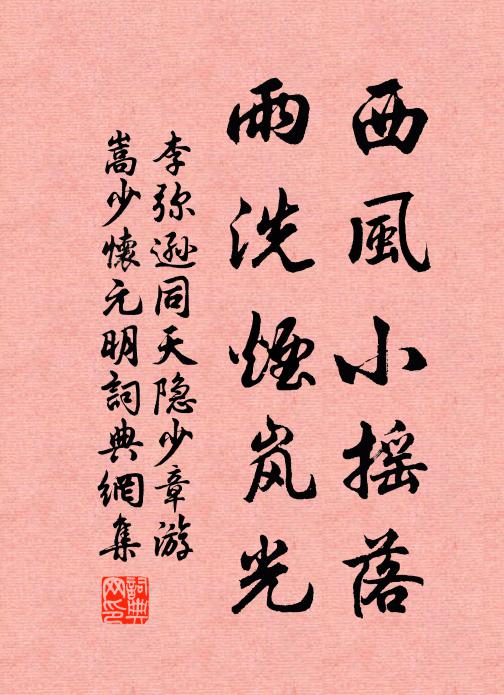 西風小摇落
雨洗煙岚光
李弥遜同天隐少章游
嵩少懷元明詞典網集
詞典
网印